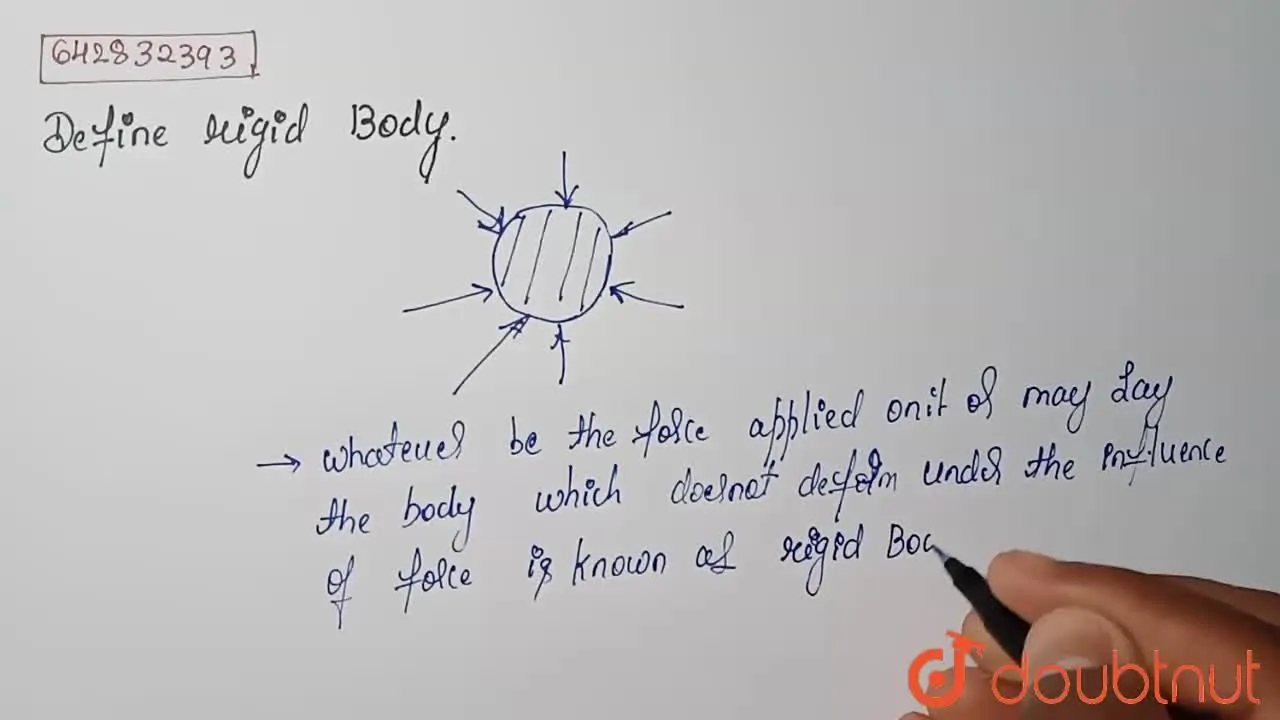 642832393
Define rigid Body.
→ whatever be the force applied on it or may say
the body which doesnot deform under the influence
of force is known as rigid Bod
doubtnut